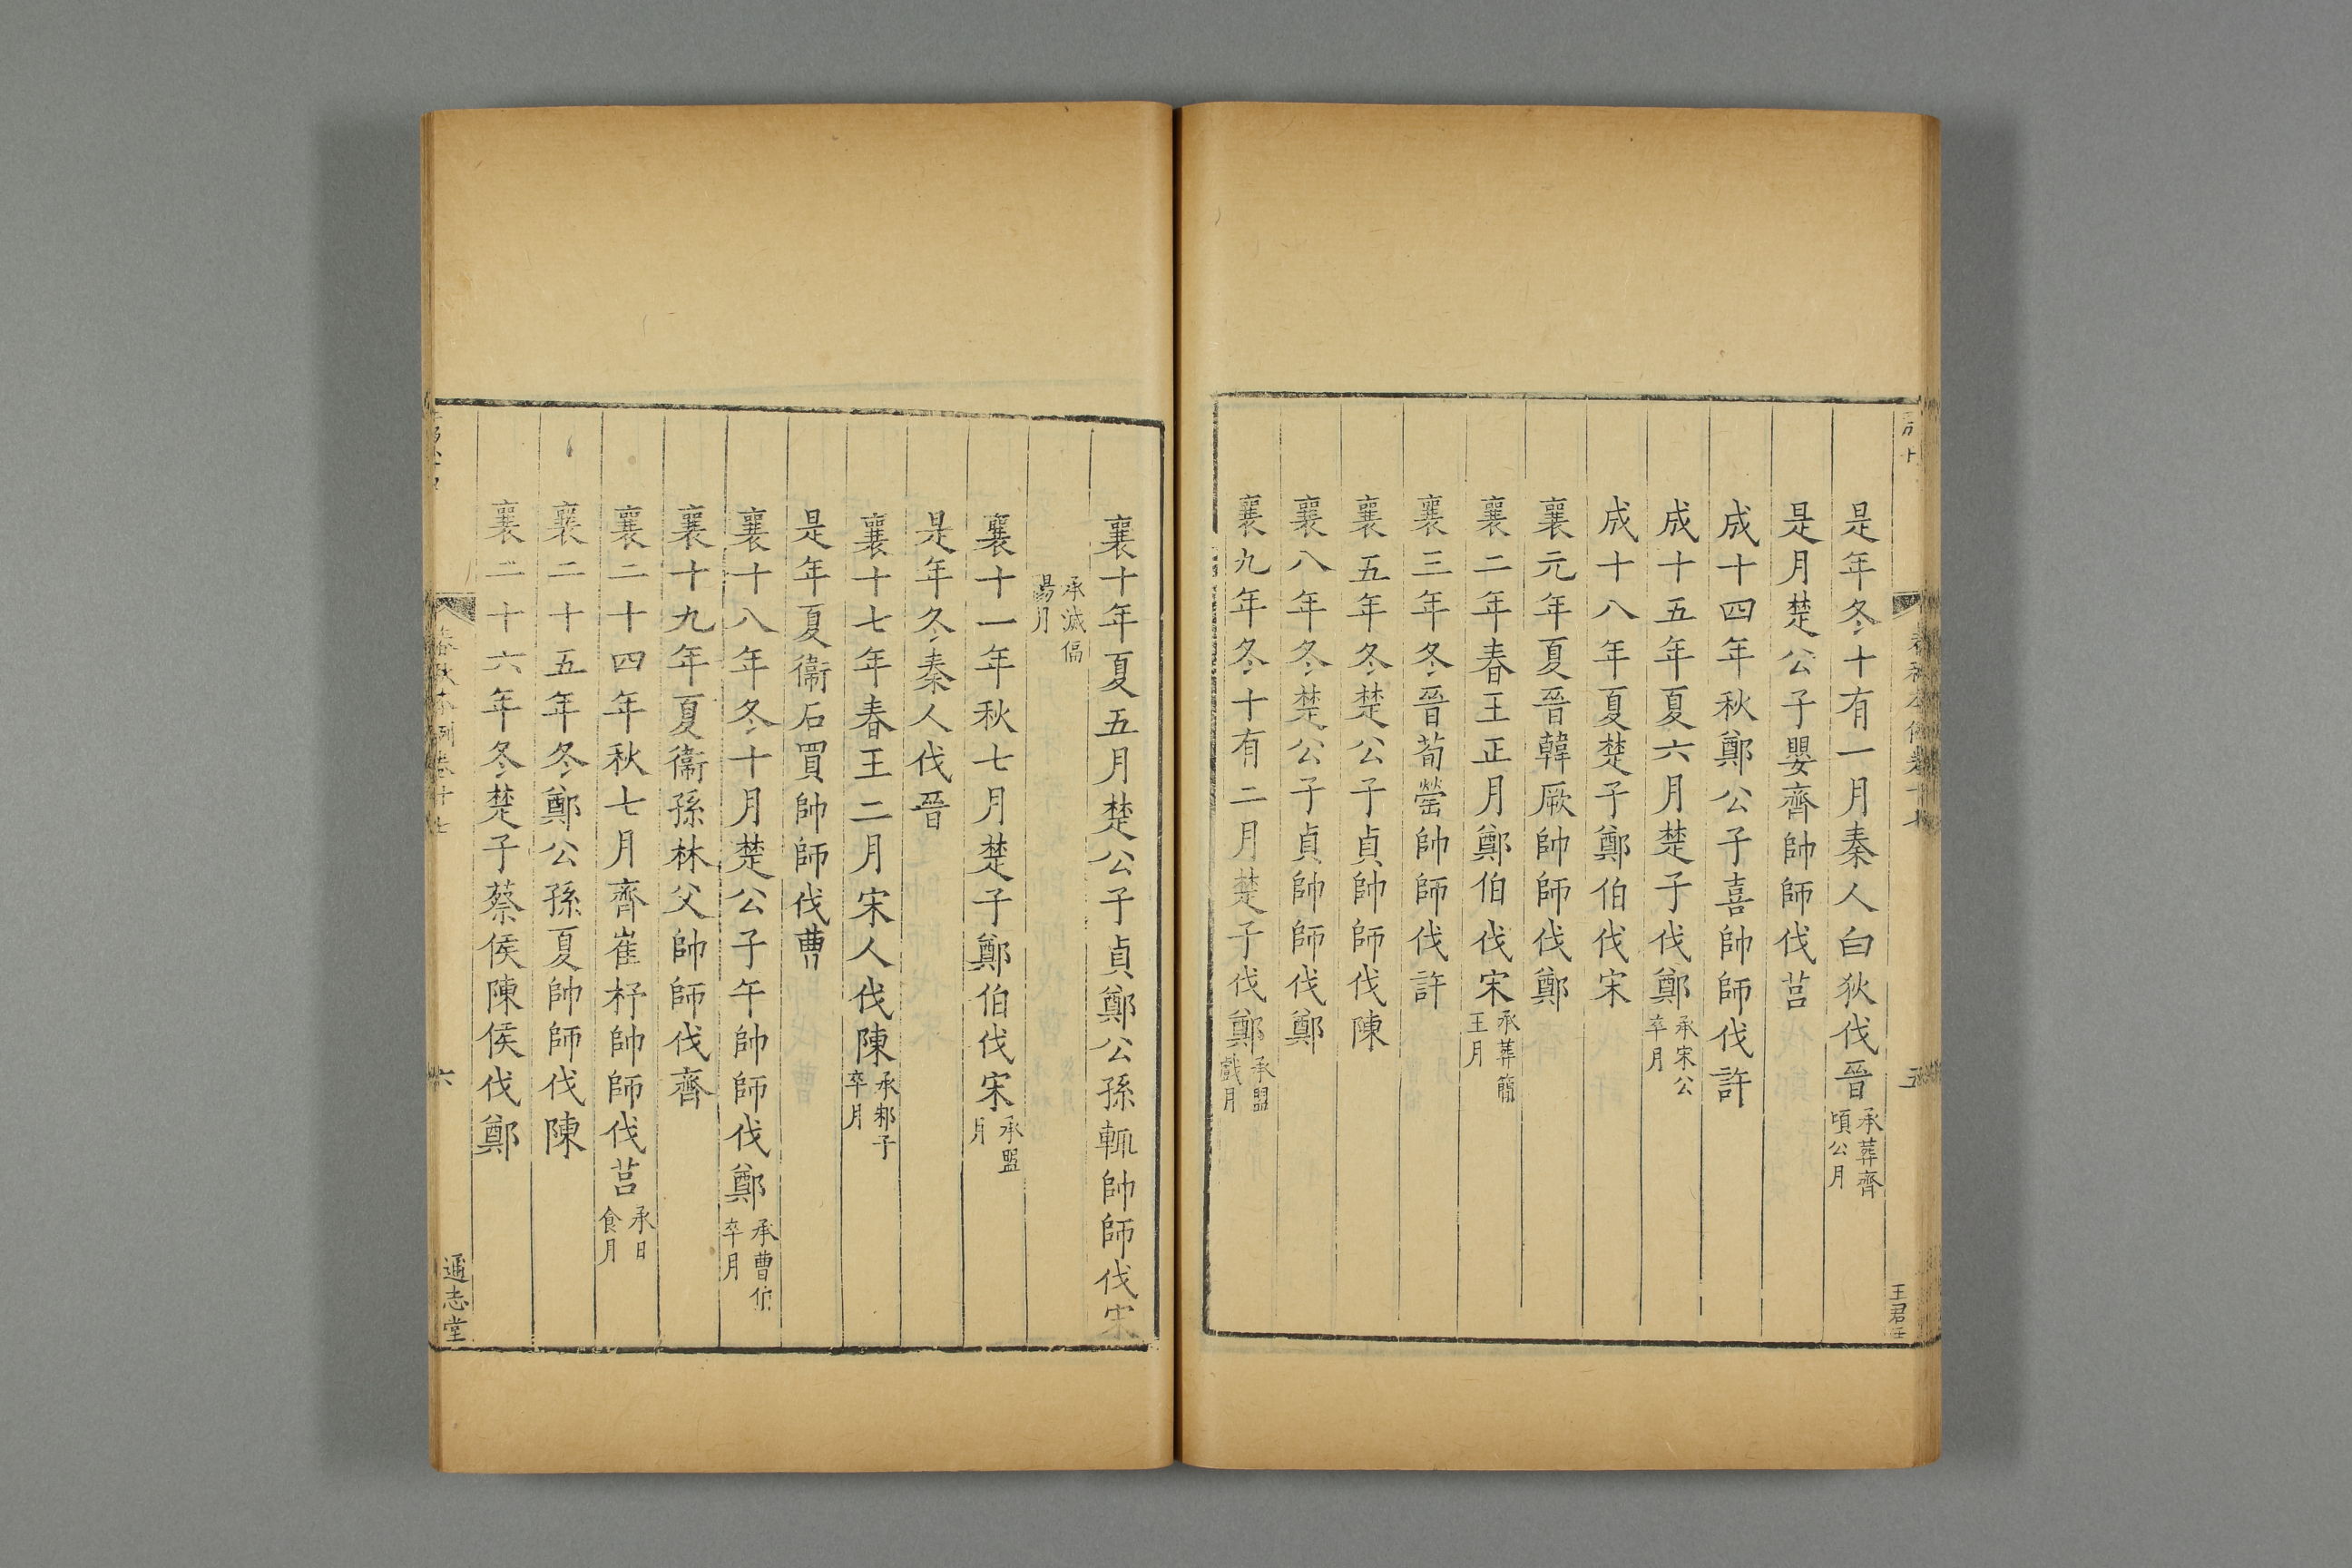 是年冬十有一月秦人白狄伐晉承葬齊頃公月
是月楚公子嬰齊帥師伐莒
成十四年秋鄭公子喜帥師伐許
成十五年夏六月楚子伐鄭承宋公卒月
成十八年夏楚子鄭伯伐宋
襄元年夏晉韓厥帥師伐鄭
襄二年春王正月鄭伯伐宋承葬簡王月
襄三年冬晉荀罃帥師伐許
襄五年冬楚公子貞帥師伐陳
襄八年冬楚公子貞帥師伐鄭
襄九年冬十有二月楚子伐鄭承盟戲月
五
襄十年夏五月楚公子貞鄭公孫輒帥師伐宋
承滅偪陽月
襄十一年秋七月楚子鄭伯伐宋承盟月
是年冬秦人伐晉
襄十七年春王二月宋人伐陳承邾子卒月
是年夏衞石買帥師伐曹
襄十八年冬十月楚公子午帥師伐鄭承曹伯卒月
襄十九年夏衞孫林父帥師伐齊
襄二十四年秋七月齊崔杼帥師伐莒承日食月
襄二十五年冬鄭公孫夏帥師伐陳
襄二十六年冬楚子蔡侯陳侯伐鄭
春秋本例卷十七
六
通志堂